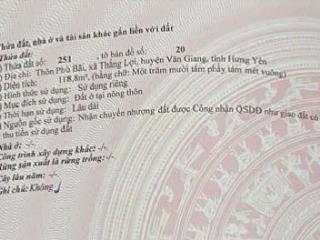 Thửa đất, nhà ở và tài sản khác gắn liền với đất
Thửa đất:
Thửa đất số: 251 , tờ bản đồ số: 20
) Địa chỉ: Thôn Phù Bãi, xã Thắng Lợi, huyện Văn Giang, tỉnh Hưng Yên
) Diện tích: 118,8m², (bằng chữ: Một trăm mười tám phẩy tám mét vuông)
) Hình thức sử dụng: Sử dụng riêng
) Mục đích sử dụng: Đất ở tại nông thôn
) Thời hạn sử dụng: Lâu dài
) Nguồn gốc sử dụng: Nhận chuyển nhượng đất được Công nhận QSDĐ như giao đất có
thu tiền sử dụng đất
Nhà ở: -/-
Công trình xây dựng khác: -/-
Rừng sản xuất là rừng trồng: -/-
Cây lâu năm: -/-
Ghi chú: Không